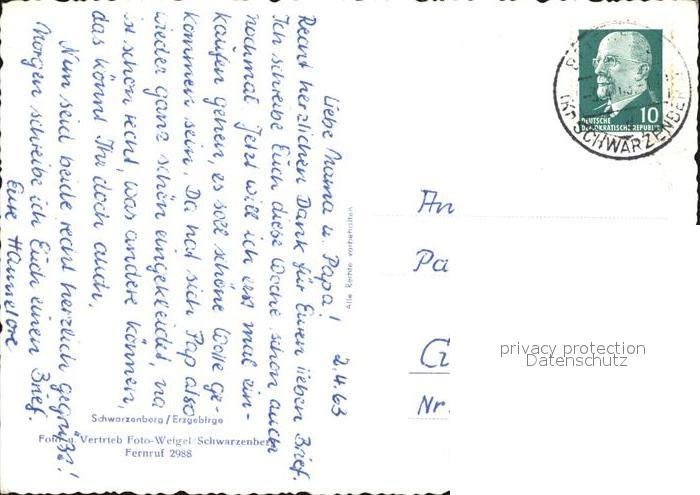 2.4.63
Liebe Mama u. Papa!
Recht herzlichen Dank für Euren lieben Brief.
Ich schreibe Euch diese Woche schon auch
nochmal. Jetzt will ich erst mal ein-
kaufen gehen, es soll schöne Wolle ge-
kommen sein. Da hat sich Pap also
wieder ganz schön eingekleidet, na
ist schon recht, was andere können,
das könnt Ihr doch auch.
Nun seid beide recht herzlich gegrüßt!
Morgen schreibe ich Euch einen Brief.
Eure Hannelore
Alle Rechte vorbehalten
Schwarzenberg / Erzgebirge
Foto u. Vertrieb Foto-Weigel Schwarzenberg
Fernruf 2988
10
DEUTSCHE
DEMOKRATISCHE REPUBLIK
SCHWARZENBE
An
Pa
Nr.
privacy protection
Datenschutz